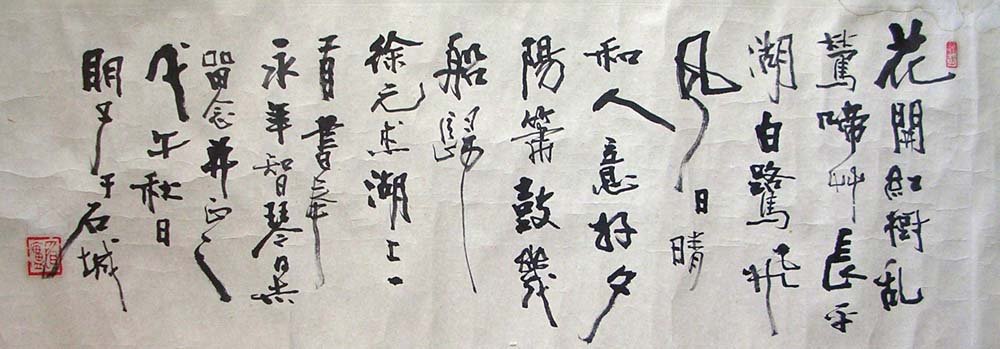 花開紅樹乱
鶯啼艸長平
湖白鷺飛
風日晴
和人意好夕
陽簫鼓幾
船歸
徐元杰湖上一
首書奉
永年智琴
留念并正之
戊午秋日
明于石城